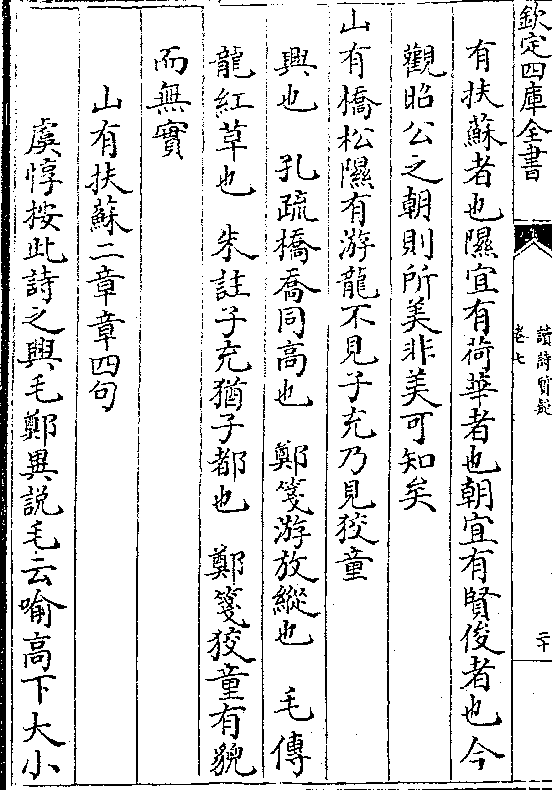 欽定四庫全書
讀詩質疑
卷七
二十
有扶蘇者也隰宜有荷華者也朝宜有賢俊者也今
觀昭公之朝則所美非美可知矣
山有橋松隰有游龍不見子充乃見狡童
興也　孔疏橋喬同高也　鄭箋游放縱也　毛傳
龍紅草也　朱註子充猶子都也　鄭箋狡童有貌
而無實
山有扶蘇二章章四句
虞惇按此詩之興毛鄭異說毛云喻高下大小